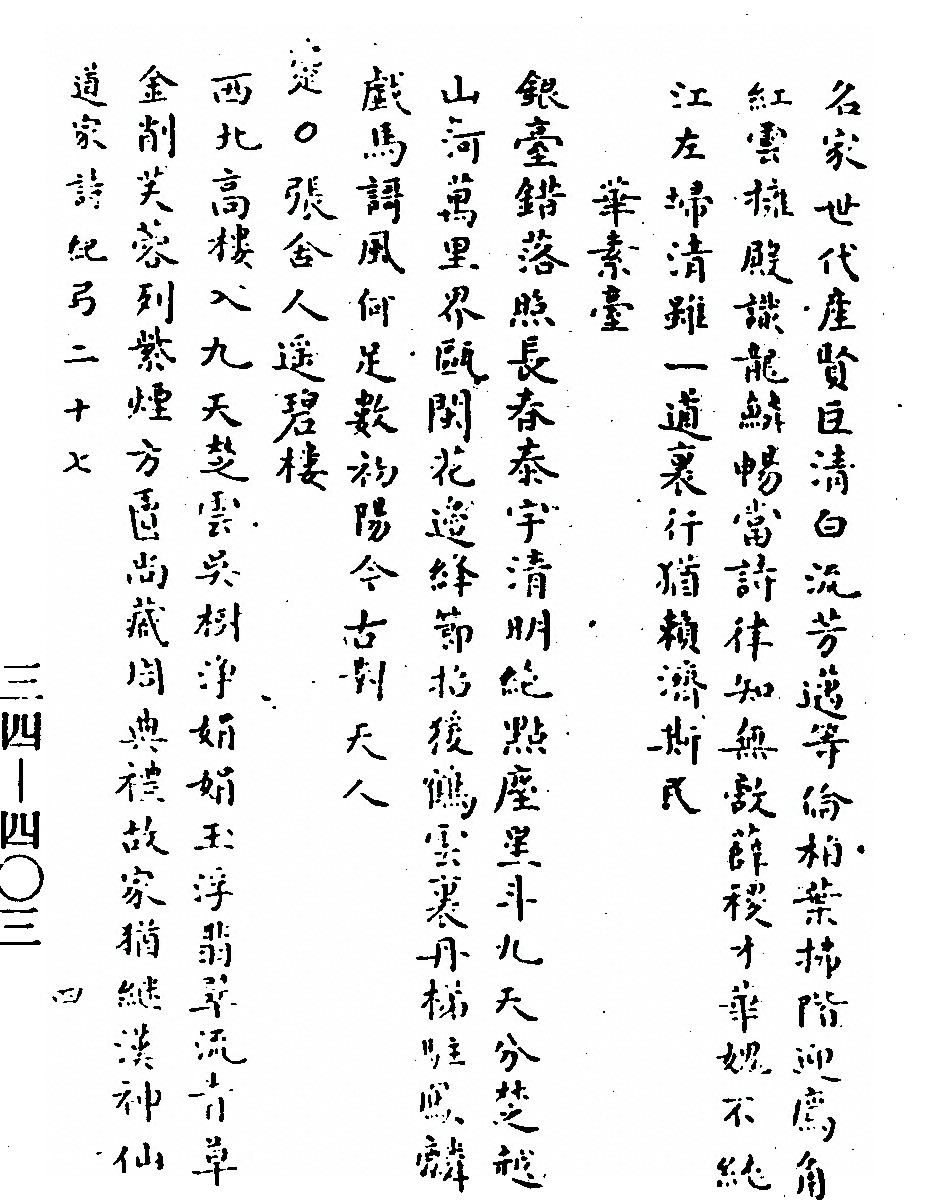 名家世代產賢臣清白流芳邁等倫柏葉拂階迎廌角
紅雲擁殿識龍鱗暢當詩律知無敵薛稷才華媿不純
江左掃清雖一道裏行猶賴濟斯民
華素臺
銀臺錯落照長春泰宇清明絕點塵星斗九天分楚越
山河萬里界甌閩花邊絳節招猨鶴雲裏丹梯駐鳳麟
戲馬謌風何足數初陽今古對天人
○張舍人遥碧樓
西北高樓入九天楚雲吳樹淨娟娟玉浮翡翠流青草
金削芙蓉列紫煙方匱尚藏周典禮故家猶繼漢神仙
道家詩紀弓二十七
四
三四—四〇三